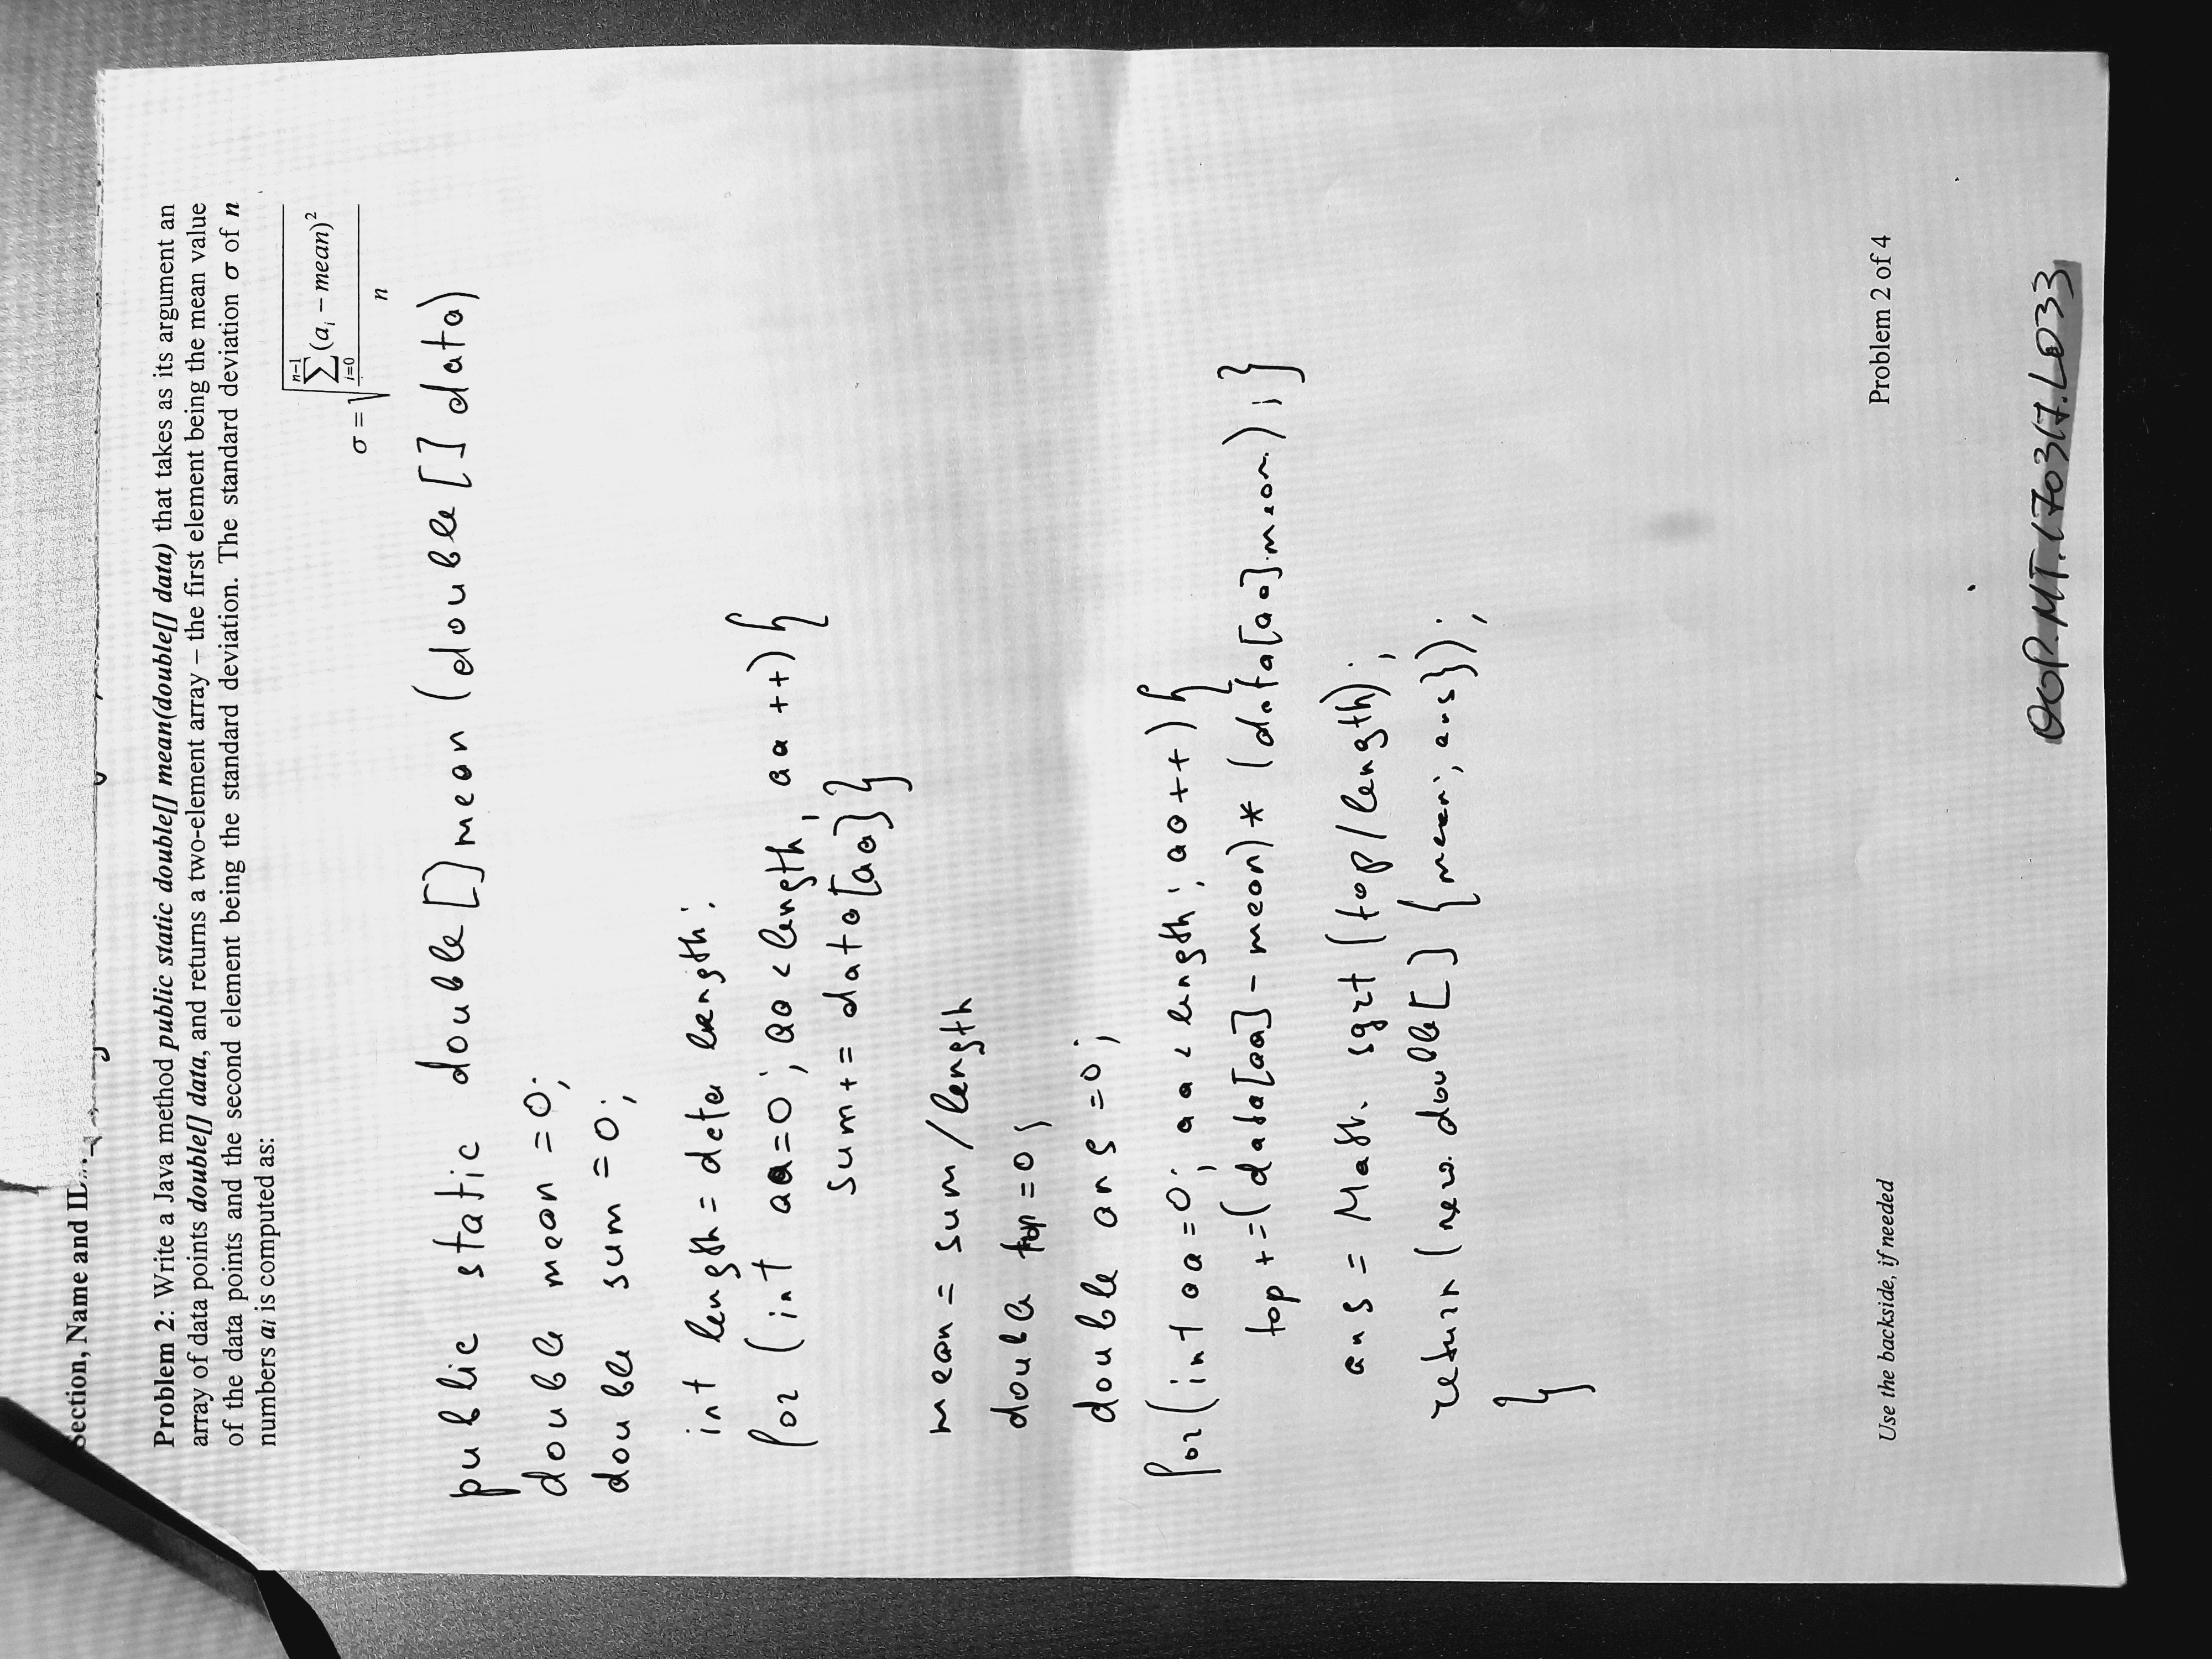 Section, Name and ID
Problem 2: Write a Java method public static double[] mean(double[] data) that takes as its argument an
array of data points double[] data, and returns a two-element array – the first element being the mean value
of the data points and the second element being the standard deviation. The standard deviation σ of n
numbers ai is computed as:
σ = √(∑_{i=0}^{n−1} (a_i − mean)² / n)
public static double[] mean (double[] data)
double mean = 0;
double sum = 0;
int length = data length;
for (int aa=0; aa < length, aa ++) {
sum += data[aa]}
mean = sum / length
double top = 0;
double ans = 0;
for (int aa=0; aa < length; aa++) {
top += (data[aa] - mean) * (data[aa]-mean);}
ans = Math. sqrt (top/length);
return (new double[] {mean; ans});
}
Use the backside, if needed
Problem 2 of 4
OOP.MT.170317.L033